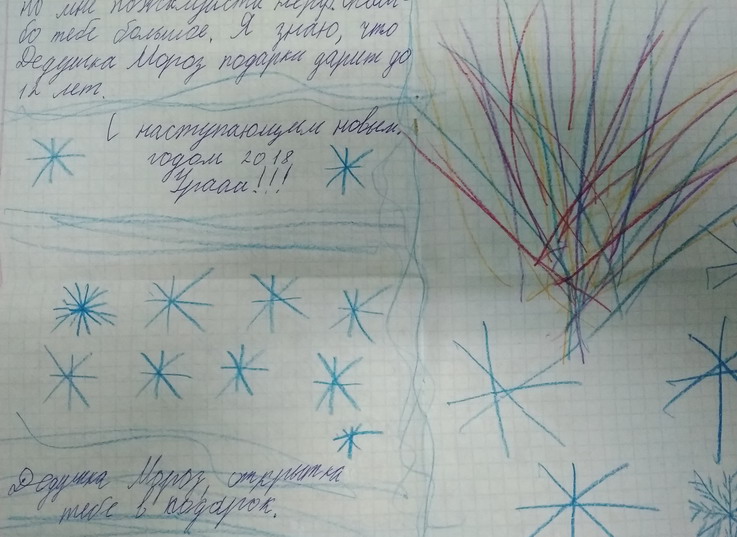 но мне пожалуйста нерф. Спаси-
бо тебе большое. Я знаю, что
Дедушка Мороз подарки дарит до
12 лет.
С наступающим новым
годом 2018
Урааа!!!
Дедушка Мороз, открытка
тебе в подарок.